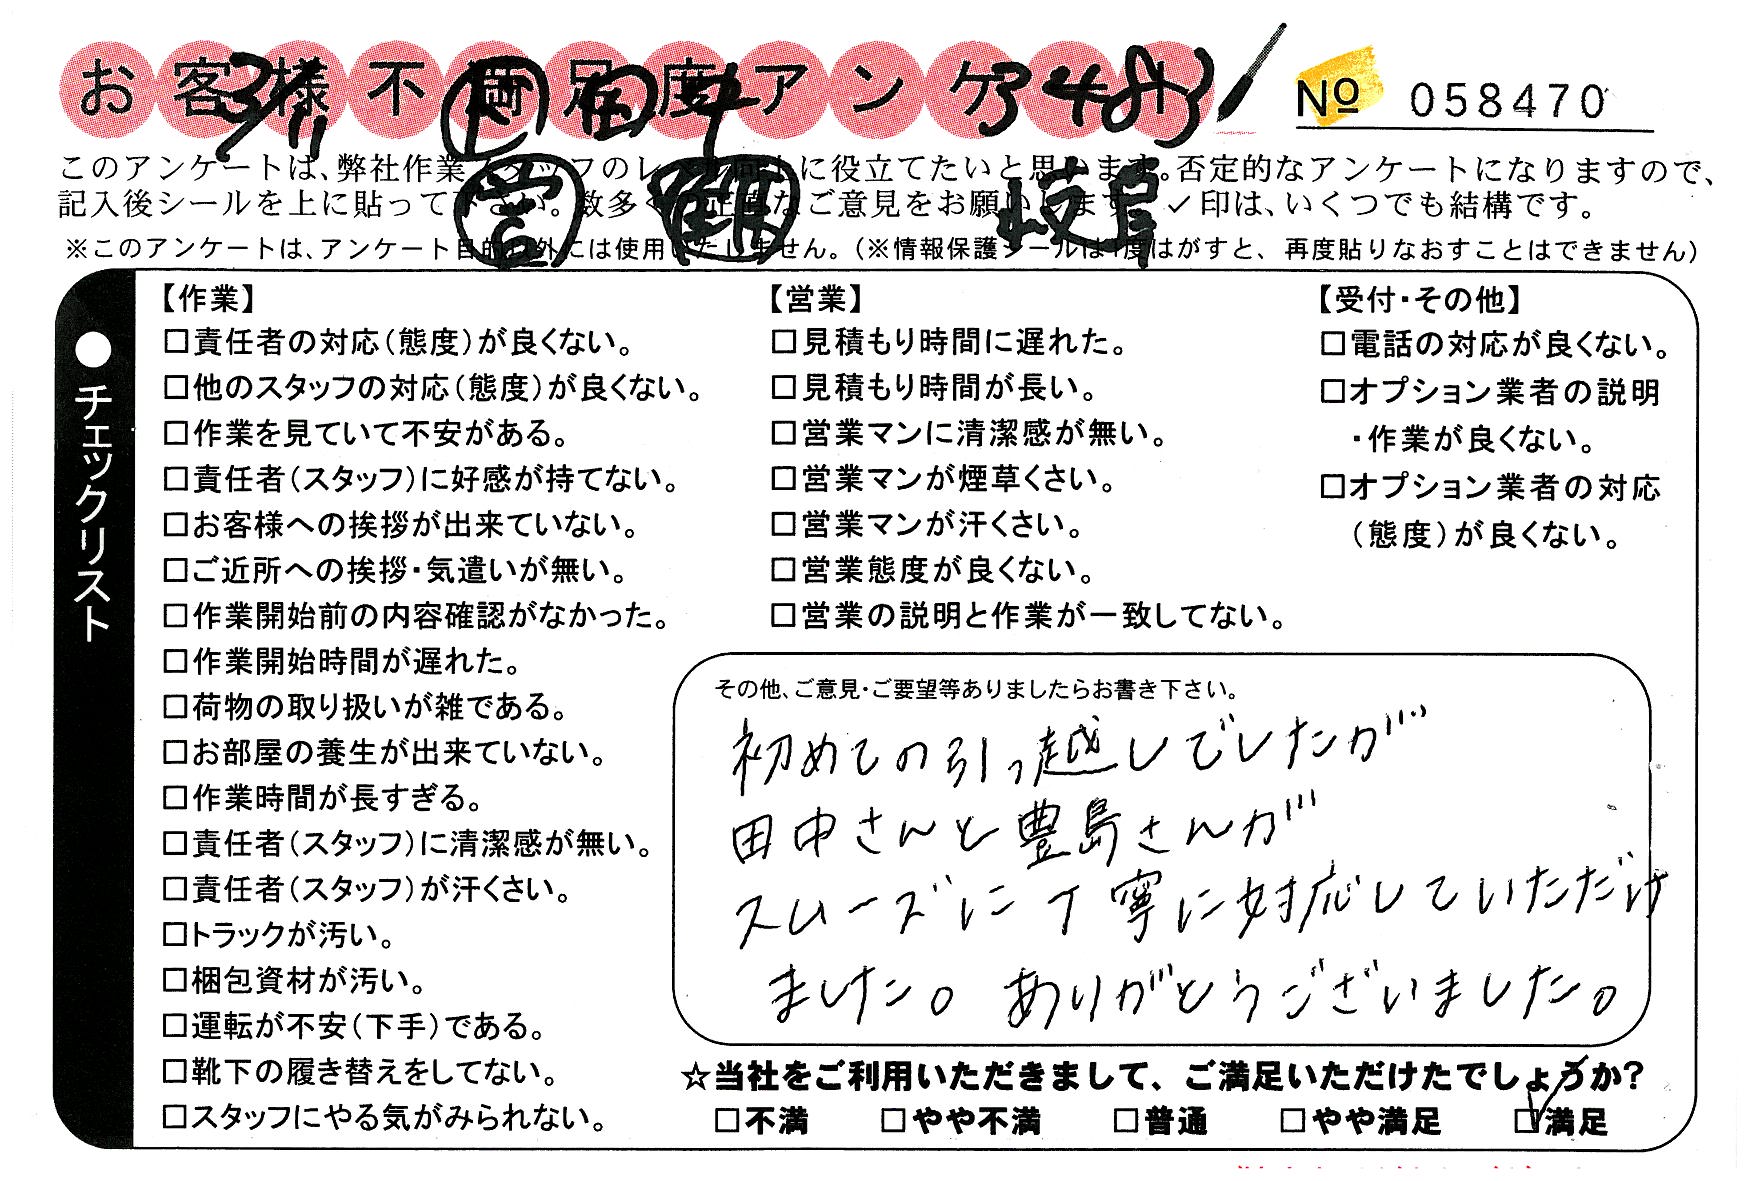 お客様不満足度アンケート
№ 058470
3/11 田中 3483
営 岐阜
このアンケートは、弊社作業スタッフのレベル向上に役立てたいと思います。否定的なアンケートになりますので、
記入後シールを上に貼って下さい。数多くの正直なご意見をお願いします。✓印は、いくつでも結構です。
※このアンケートは、アンケート目的以外には使用いたしません。(※情報保護シールは1度はがすと、再度貼りなおすことはできません)
●チェックリスト
【作業】
□責任者の対応(態度)が良くない。
□他のスタッフの対応(態度)が良くない。
□作業を見ていて不安がある。
□責任者(スタッフ)に好感が持てない。
□お客様への挨拶が出来ていない。
□ご近所への挨拶・気遣いが無い。
□作業開始前の内容確認がなかった。
□作業開始時間が遅れた。
□荷物の取り扱いが雑である。
□お部屋の養生が出来ていない。
□作業時間が長すぎる。
□責任者(スタッフ)に清潔感が無い。
□責任者(スタッフ)が汗くさい。
□トラックが汚い。
□梱包資材が汚い。
□運転が不安(下手)である。
□靴下の履き替えをしてない。
□スタッフにやる気がみられない。
【営業】
□見積もり時間に遅れた。
□見積もり時間が長い。
□営業マンに清潔感が無い。
□営業マンが煙草くさい。
□営業マンが汗くさい。
□営業態度が良くない。
□営業の説明と作業が一致してない。
【受付・その他】
□電話の対応が良くない。
□オプション業者の説明
・作業が良くない。
□オプション業者の対応
(態度)が良くない。
その他、ご意見・ご要望等ありましたらお書き下さい。
初めての引っ越しでしたが
田中さんと豊島さんが
スムーズに丁寧に対応していただけ
ました。ありがとうございました。
☆当社をご利用いただきまして、ご満足いただけたでしょうか?
□不満 □やや不満 □普通 □やや満足 ☑満足